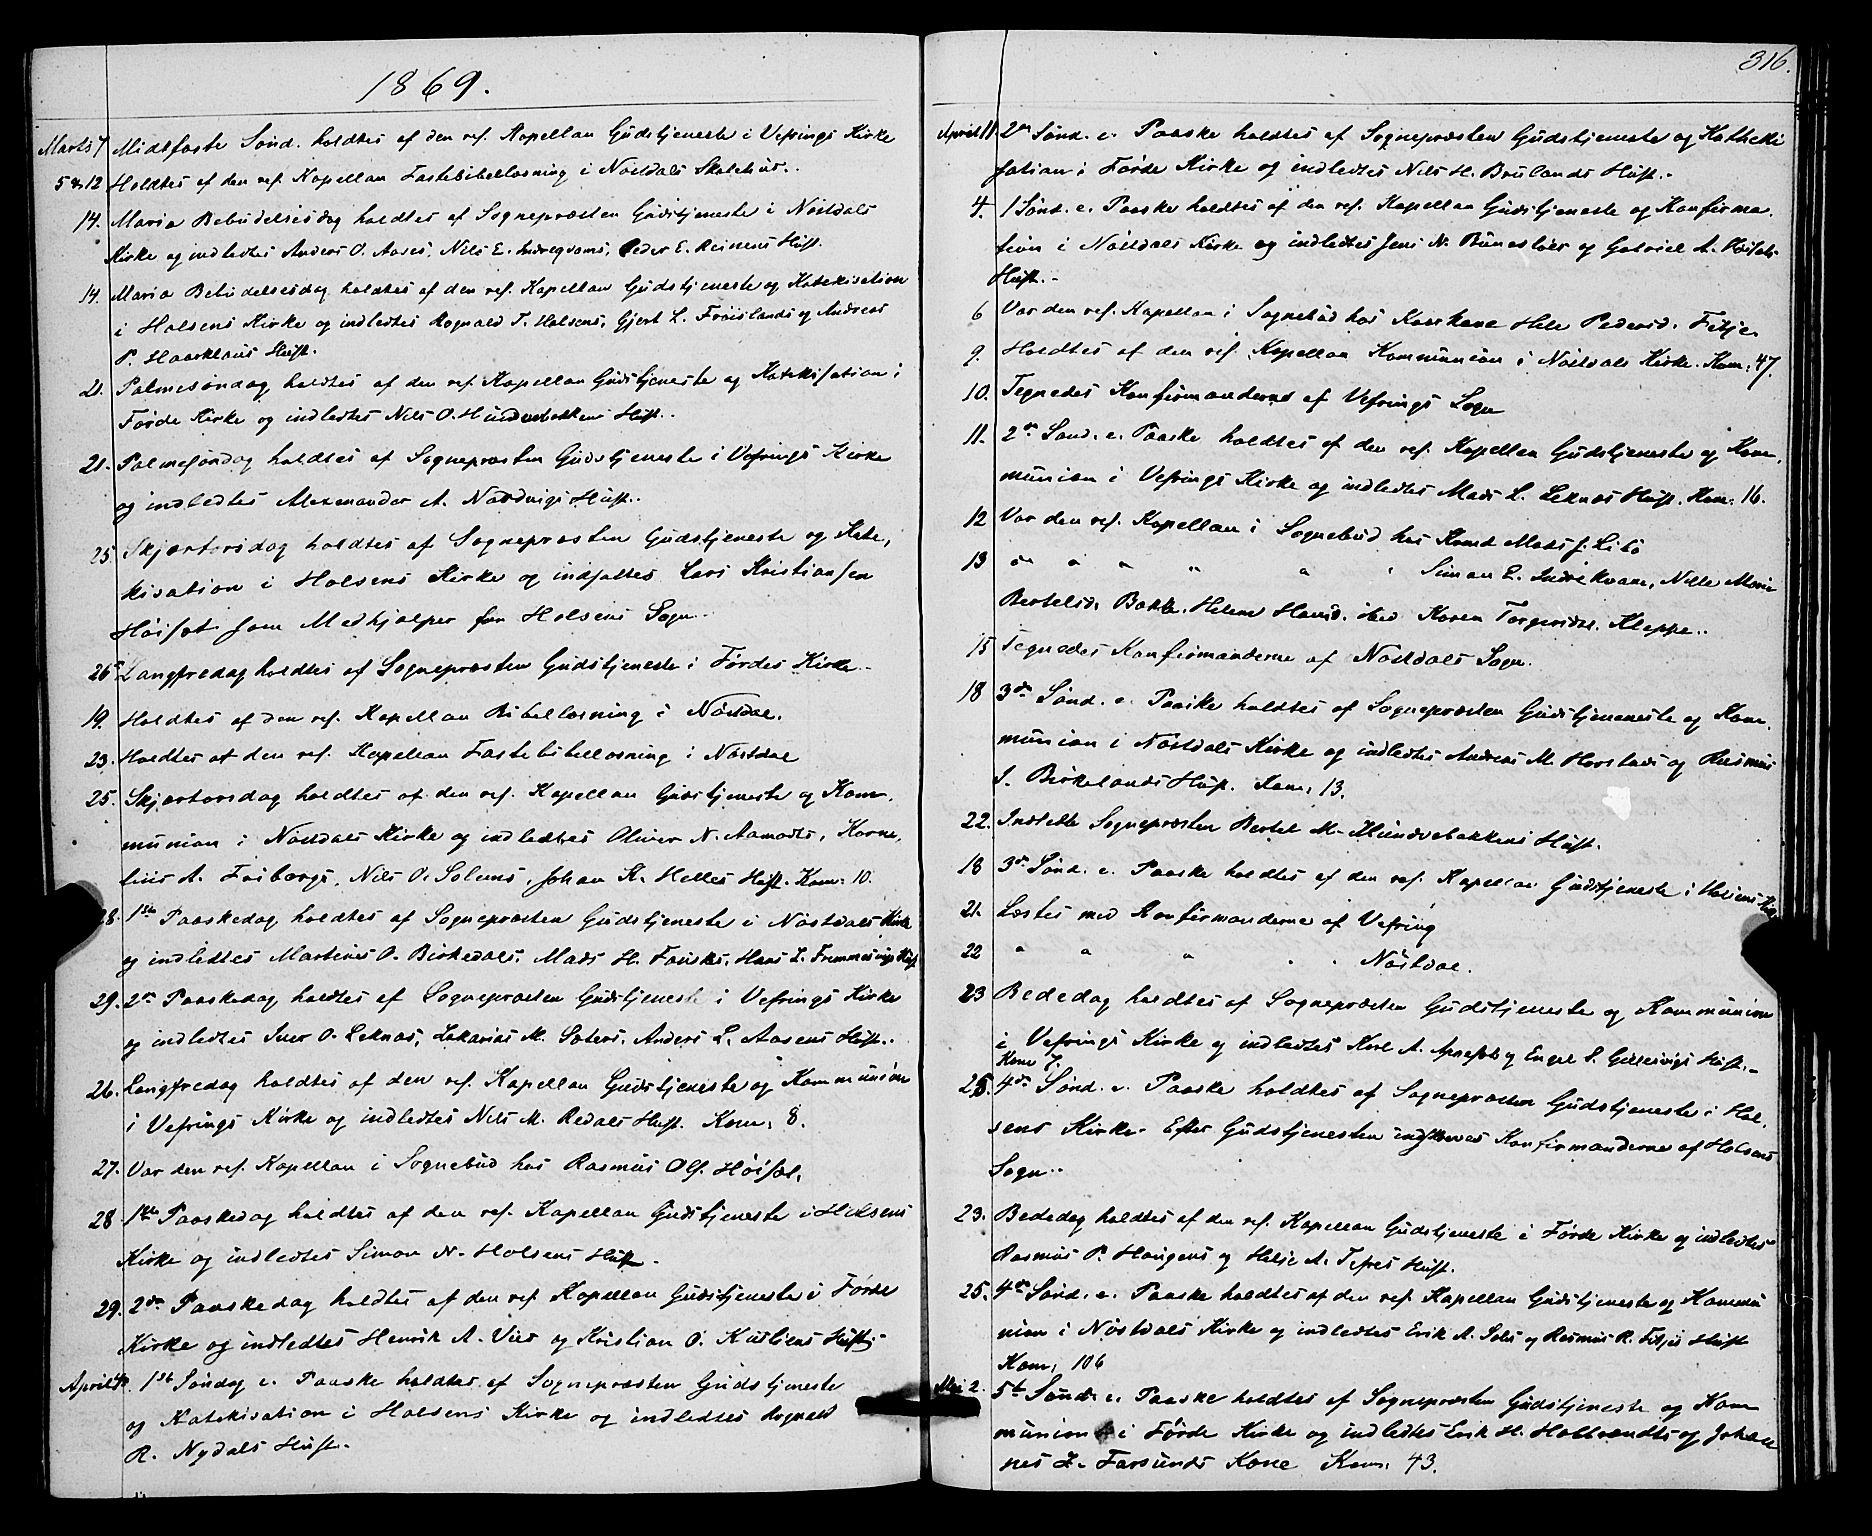 1869.
Marts 7 Midtfaste Sønd. holdtes af den res. Kapellan Gudstjeneste i Vefrings Kirke
5 & 12 Holdtes af den res. Kapellan Fastebibellæsning i Nøstdals Skolehus.
14. Maria Bebudelsesdag holdtes af Sognepræsten Gudstjeneste i Nøstdals
Kirke og indledtes Anders O. Aases, Nils E. Indreqvams, Peder E. Reinens Hust.
14. Maria Bebudelsesdag holdtes af den res. Kapellan Gudstjeneste og Katekisation
i Holsens Kirke og indledtes Rognald T. Holsens, Gjert L. Frøislands og Andreas
P. Haarklaus Hust.
21. Palmesøndag holdtes af den res. Kapellan Gudstjeneste og Katekisation i
Førde Kirke og indledtes Nils O. Hundvebakkens Hust.
21. Palmesøndag holdtes af Sognepræsten Gudstjeneste i Vefrings Kirke
og indledtes Alexander A. Nordvigs Hust.
25. Skjærtorsdag holdtes af Sognepræsten Gudstjeneste og Kate,
kisation i Holsens Kirke og indsattes Lars Kristiansen
Høisæt som Medhjælper for Holsens Sogn.
26 Langfredag holdtes af Sognepræsten Gudstjeneste i Førdes Kirke.
19. Holdtes af den res. Kapellan Bibellæsning i Nøstdal.
23. Holdtes af den res. Kapellan Fastebibellæsning i Nøstdal
25. Skjærtorsdag holdtes af den res. Kapellan Gudstjeneste og Kom,
munion i Nøstdals Kirke og indledtes Oliver N. Aamodts, Korne,
lius A. Friborgs, Nils O. Solems, Johan K. Helles Hust. Kom: 10.
28. 1ste Paaskedag holdtes af Sognepræsten Gudstjeneste i Nøstdals Kirke
og indledtes Martinus O. Birkedals, Mads H. Fauskes, Hans L. Hust
29. 2den Paaskedag holdtes af Sognepræsten Gudstjeneste i Vefrings Kirke
og indledtes Iver O. Leknæs, Zakarias M. Sæters, Anders L. Aasens Hust.
26. Langfredag holdtes af den res. Kapellan Gudstjeneste og Kommunion
i Vefrings Kirke og indledtes Nils M. Redals Hust. Kom: 8.
27. Var den res. Kapellan i Sognebud hos Rasmus Ols. Høisæt.
28 1ste Paaskedag holdtes af den res. Kapellan Gudstjeneste i Holsens
Kirke og indledtes Simon N. Holsens Hust.
29. 2den Paaskedag holdtes af den res. Kapellan Gudstjeneste i Førde
Kirke og indledtes Henrik A. Vies og Kristian O. Hust.
April 4 1ste Søndag e. Paaske holdtes af Sognepræsten Gudstjeneste
og Katekisation i Holsens Kirke og indledtes Rognald
R. Nydals Hust.
316.
April 11 2den Sønd. e. Paaske holdtes af Sognepræsten Gudstjeneste og Katheki
sation i Førde Kirke og indledtes Nils H. Brulands Hust.
4. 1 Sønd. e. Paaske holdtes af den res. Kapellan Gudstjeneste og Konfirma,
tion i Nøstdals Kirke og indledtes Jens N. og Gabriel A. Høisæts
Hust.
6 Var den res. Kapellan i Sognebud hos Pedersd. Fitje.
9. Holdtes af den res. Kapellan Kommunion i Nøstdals Kirke. Kom: 47.
10. Tegnedes Konfirmanderne af Vefrings Sogn
11. 2den Sønd. e. Paaske holdtes af den res. Kapellan Gudstjeneste og Kom,
munion i Vefrings Kirke og indledtes Mads L. Leknæs Hust. Kom: 16.
12 Var den res. Kapellan i Sognebud hos Mads J.
13 " " " " " " Simon L. Indrekvam, Nille Marie
Bertelsd. Bakke, Helene Hansd. ibid Karen Torgersd. Kleppe.
15 Tegnedes Konfirmanderne af Nøstdals Sogn.
18 3die Sønd. e. Paaske holdtes af Sognepræsten Gudstjeneste og Kom,
munion i Nøstdals Kirke og indledtes Andreas M. Horstads og Rasmus
S. Birkelands Hust. Kom: 13.
22. Indledte Sognepræsten Bertel M. Hundvebakkens Hust.
18 3die Sønd. e. Paaske holdtes af den res. Kapellan Gudstjeneste i Holsens Kirke
21. Læstes med Konfirmanderne af Vefring
22 " " " " " Nøstdal.
23 Bededag holdtes af Sognepræsten Gudstjeneste og Kommunion
i Vefrings Kirke og indledtes Karl A. og Engel S. Hust.
Kom 7.
25. 4de Sønd. e. Paaske holdtes af Sognepræsten Gudstjeneste i Hol,
sens Kirke. Efter Gudstjenesten indskreves Konfirmanderne af Holsens
Sogn.
23. Bededag holdtes af den res. Kapellan Gudstjeneste i Førde Kirke og indledtes
Rasmus P. Haugens og Helje A. Hust.
25. 4de Sønd. e. Paaske holdtes af den res. Kapellan Gudstjeneste og Kommu
nion i Nøstdals Kirke og indledtes Erik A. og Rasmus R. Fitjes Hust
Kom: 106
Mai 2. 5te Sønd. e. Paaske holdtes af Sognepræsten Gudstjeneste og Kom
munion i Førde Kirke og indledtes Erik H. og Johan
nes L. Farsunds Kone Kom: 43.